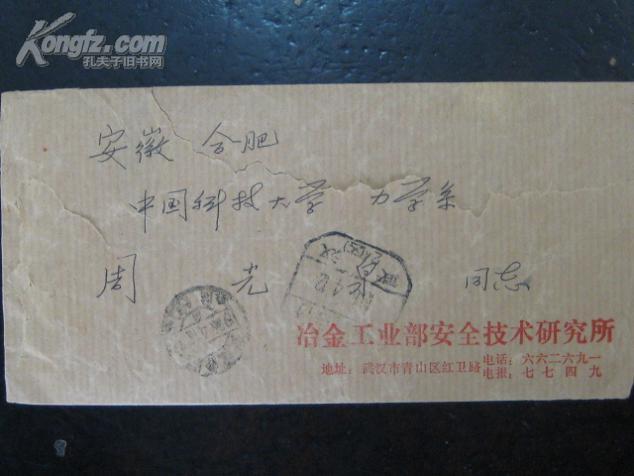 Kongfz.com
孔夫子旧书网
安徽 合肥
中国科技大学 力学系
周 光 同志
冶金工业部安全技术研究所
地址：武汉市青山区红卫路
电话：六六二六九一
电报：七七四九